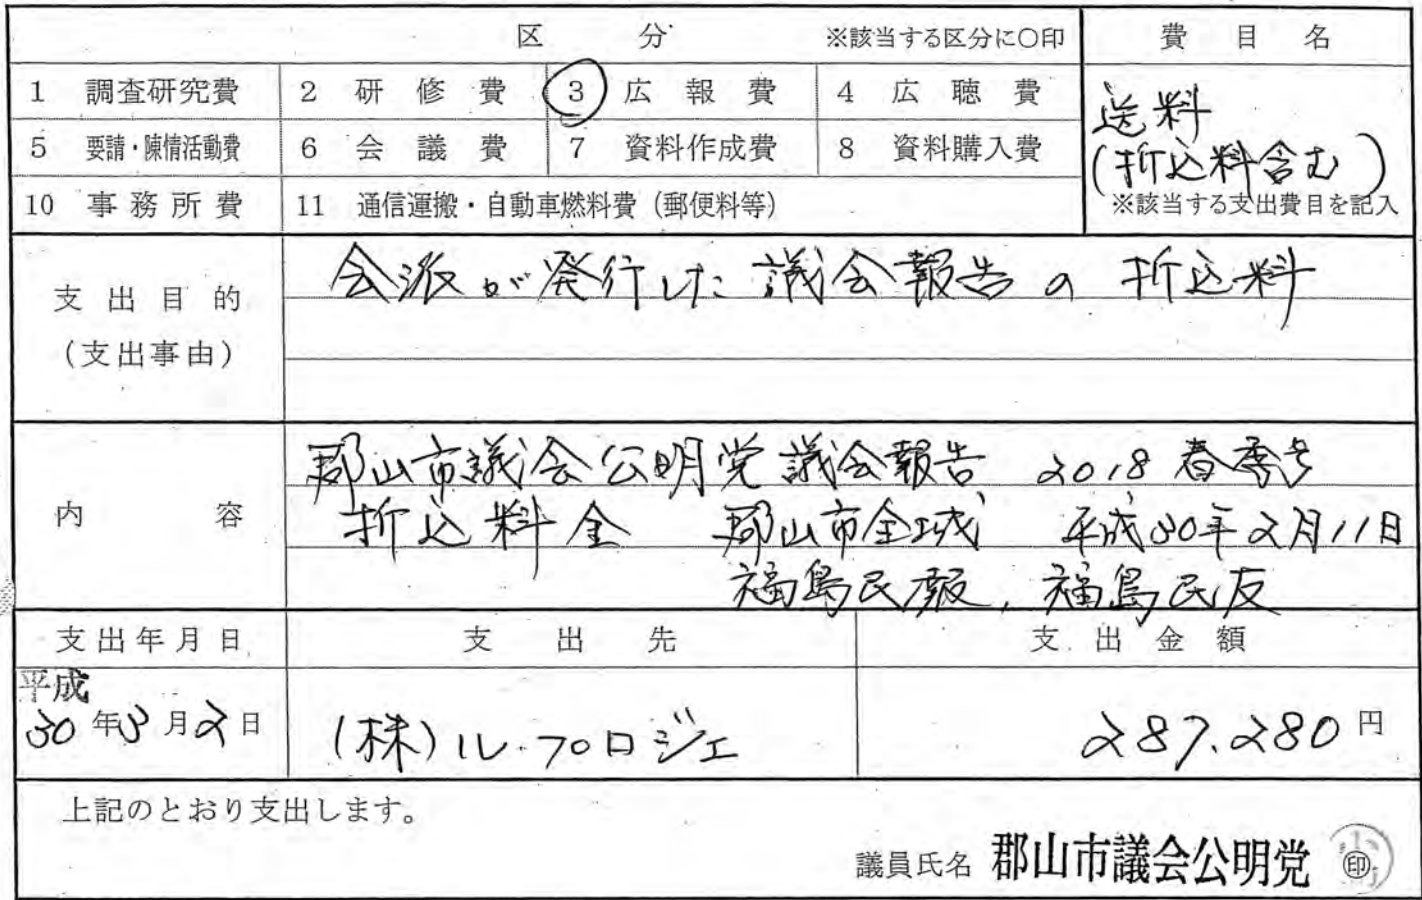 区 分 ※該当する区分に〇印 費 目 名
1 調査研究費 2 研 修 費 3 広 報 費 4 広 聴 費
送料
5 要請・陳情活動費 6 会 議 費 7 資料作成費 8 資料購入費
(折込料含む)
10 事務所費 11 通信運搬・自動車燃料費(郵便料等)
※該当する支出費目を記入
支出目的
(支出事由)
会派が発行した議会報告の折込料
内 容
郡山市議会公明党議会報告 2018春季号
折込料金 郡山市全域 平成30年2月11日
福島民報, 福島民友
支出年月日 支 出 先 支 出 金 額
平成
30年3月2日 (株)ル・プロジェ 287.280円
上記のとおり支出します。
議員氏名 郡山市議会公明党 印